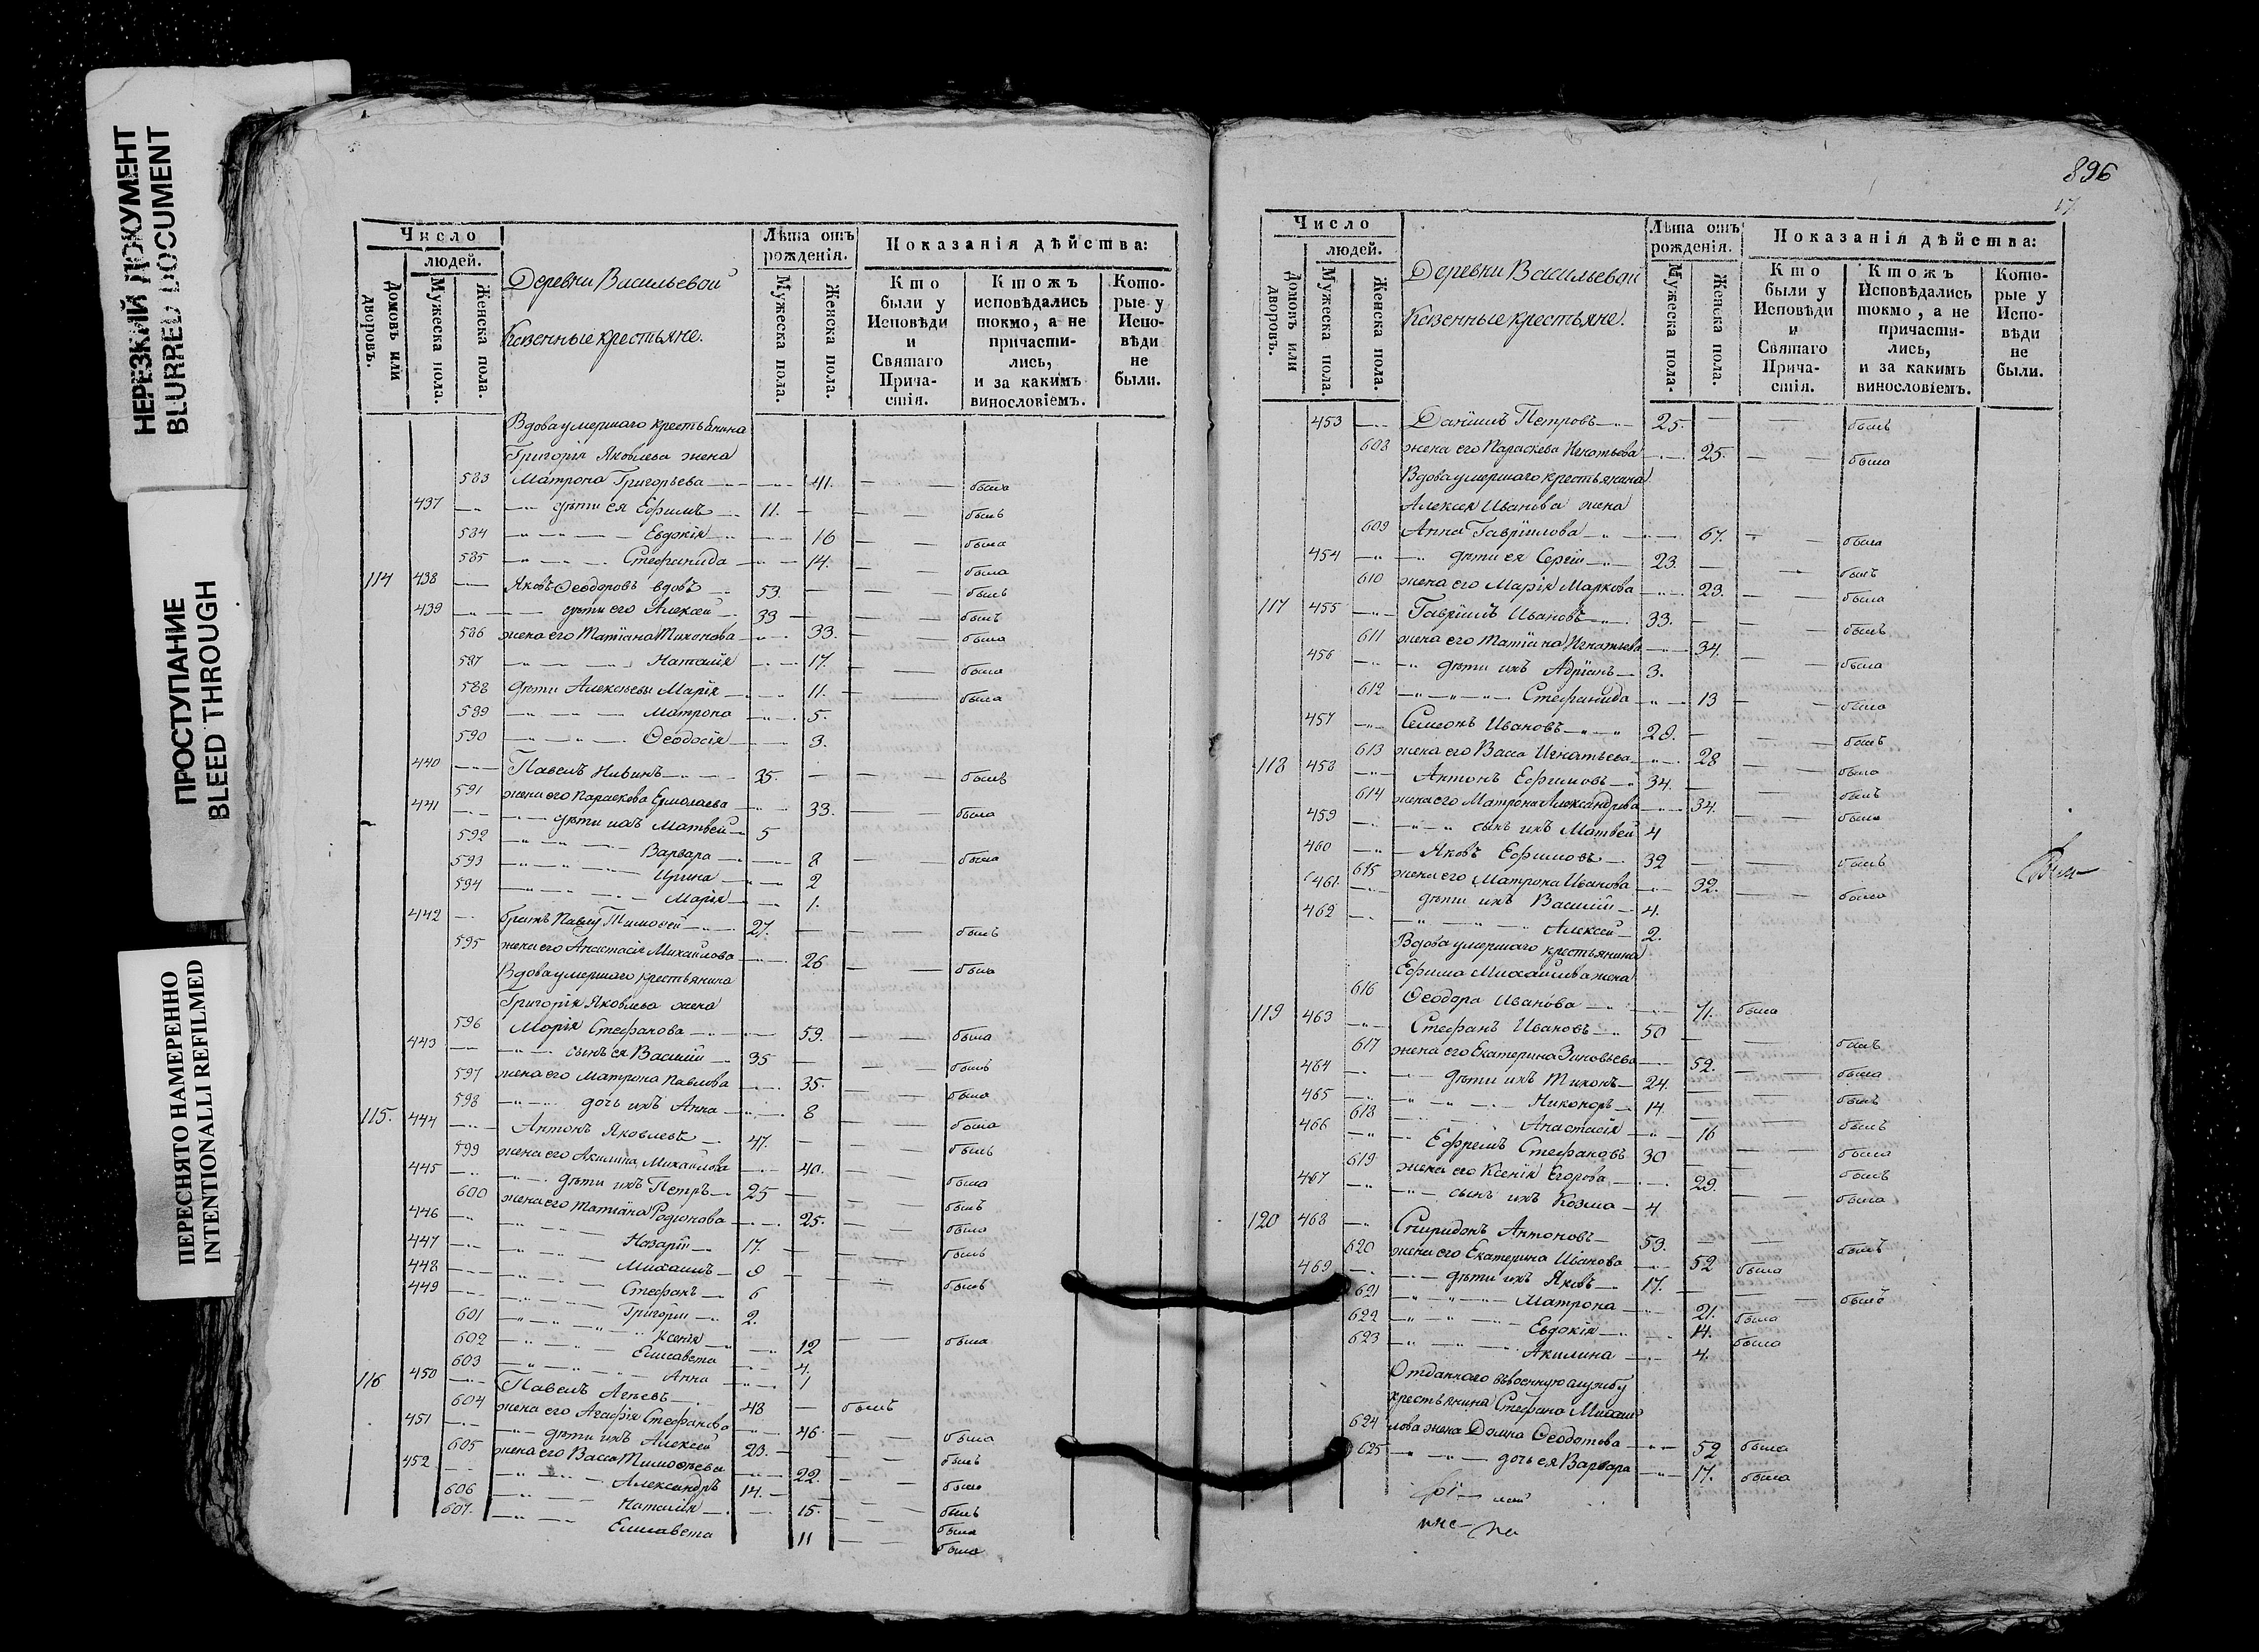 НЕРЕЗКИЙ ДОКУМЕНТ
BLURRED DOCUMENT
ПРОСТУПАНИЕ
BLEED THROUGH
ПЕРЕСНЯТО НАМЕРЕННО
INTENTIONALLI REFILMED
Число
людей.
Домовъ или дворовъ.
Мужеска пола.
Женска пола.
Деревни Васильевой
Казенные крестьяне.
Лѣта отъ рожденія.
Мужеска пола.
Женска пола.
Показанія дѣйства:
Кто были у Исповѣди и Святаго Причастія.
Ктожъ исповѣдались токмо, а не причастились, и за какимъ винословіемъ.
Которые у Исповѣди не были.
Вдова умершаго крестьянина
Григорія Яковлева жена
583 Матрона Григорьева 41. была
437 дѣти ея Ефимъ 11. былъ
584 Евдокія 16 была
585 Стефанида 14. была
114 438 Яковъ Ѳеодоровъ вдовъ 53. былъ
439 дѣти его Алексей 33 былъ
586 жена его Татіана Тихонова 33. была
587 Наталія 17. была
588 дѣти Алексѣевы Марія 11. была
589 Матрона 5.
590 Ѳеодосія 3.
440 Павелъ Ильинъ 35. былъ
591 жена его Параскева Ермолаева 33. была
441 дѣти ихъ Матвей 5
592 Варвара 8 была
593 Ирина 2
594 Марія 1.
442 братъ Павлу Тимоѳей 27. былъ
595 жена его Анастасія Михайлова 26 была
Вдова умершаго крестьянина
Григорія Яковлева жена
596 Марія Стефанова 59. была
443 сынъ ея Василій 35 былъ
597 жена его Матрона Павлова 35. была
598 дочь ихъ Анна 8 была
115. 444 Антонъ Яковлевъ 47. былъ
599 жена его Акилина Михайлова 40. была
445 дѣти ихъ Петръ 25 былъ
600 жена его Татіана Родіонова 25. была
446 Назарій 17. былъ
447 Михаилъ 9 былъ
448 Стефанъ 6
449 Григорій 2.
601 Ксенія 12 была
602 Елисавета 4.
603 Анна 1
116 450 Павелъ Агѣевъ 48 былъ
604 жена его Агафія Стефанова 46. была
451 дѣти ихъ Алексей 23. былъ
605 жена его Васса Тимоѳеева 22. была
452 Александръ 14. былъ
606 Наталія 15. была
607. Елисавета 11 была
896
17.
Число
людей.
Домовъ или дворовъ.
Мужеска пола.
Женска пола.
Деревни Васильевой
Казенные крестьяне.
Лѣта отъ рожденія.
Мужеска пола.
Женска пола.
Показанія дѣйства:
Кто были у Исповѣди и Святаго Причастія.
Ктожъ Исповѣдались токмо, а не причастились, и за какимъ винословіемъ.
Которые у Исповѣди не были.
453 Даніилъ Петровъ 25. былъ
608 жена его Параскева Игнатьева 25. была
Вдова умершаго крестьянина
Алексея Иванова жена
609 Анна Гавриилова 67. была
454 дѣти ея Сергій 23. былъ
610 жена его Марія Маркова 23. была
117 455 Гавріилъ Ивановъ 33. былъ
611 жена его Татіана Игнатьева 34. была
456 дѣти ихъ Адріанъ 3.
612 Стефанида 13 была
457 Симеонъ Ивановъ 28. былъ
613 жена его Васса Игнатьева 28 была
118 458 Антонъ Ефимовъ 34. былъ
614 жена его Матрона Александрова 34. была
459 сынъ ихъ Матвей 4
460 Яковъ Ефимовъ 32 былъ
615 жена его Матрона Иванова 32. была
461. дѣти ихъ Василій 4.
462 Алексей 2.
Вдова умершаго крестьянина
Ефима Михайлова жена
616 Ѳеодора Иванова 71. была
119 463 Стефанъ Ивановъ 50 былъ
617 жена его Екатерина Зиновьева 52. была
464 дѣти ихъ Тихонъ 24. былъ
465 Никоноръ 14. былъ
618 Анастасія 16 была
466 Ефремъ Стефановъ 30 былъ
619 жена его Ксенія Егорова 29. была
467 сынъ ихъ Козма 4
120 468 Спиридонъ Антоновъ 53. былъ
620 жена его Екатерина Иванова 52 была
469 дѣти ихъ Яковъ 17. былъ
621 Матрона 21. была
622 Евдокія 14. была
623 Акилина 4.
Отданнаго въ военную службу
крестьянина Стефана Михай
624 лова жена Домна Ѳеодотова 52 была
625 дочь ея Варвара 17. была